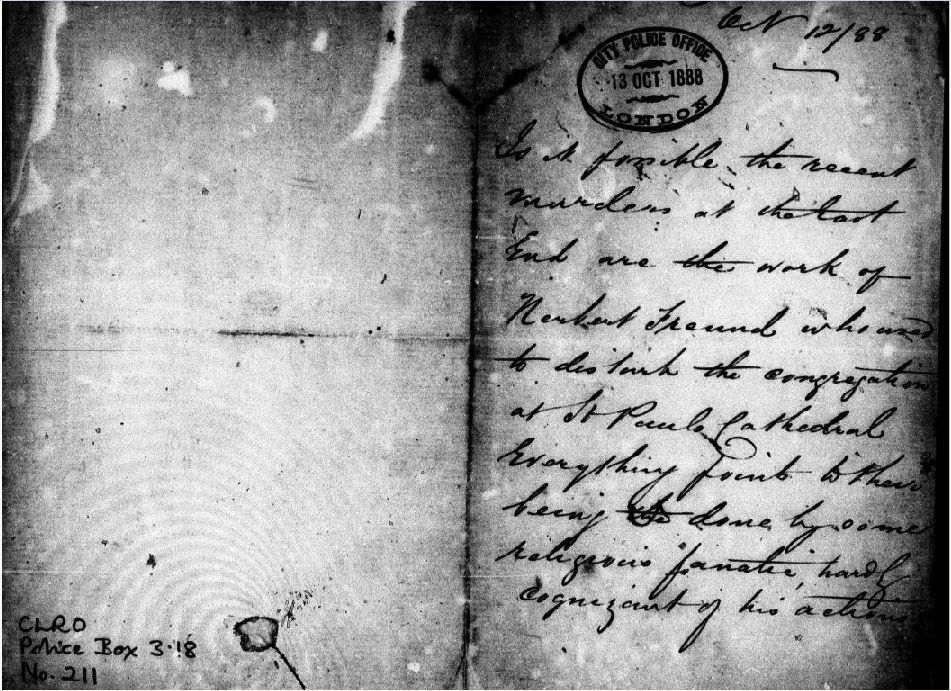 Oct 12/88
CITY POLICE OFFICE
13 OCT 1888
LONDON
Is it possible the recent
murders at the East
End are the work of
Herbert Freund who used
to disturb the congregation
at St Pauls Cathedral
Everything points to their
being done by some
religious fanatic, hardly
cognizant of his actions
CLRO
Police Box 3·18
No. 211